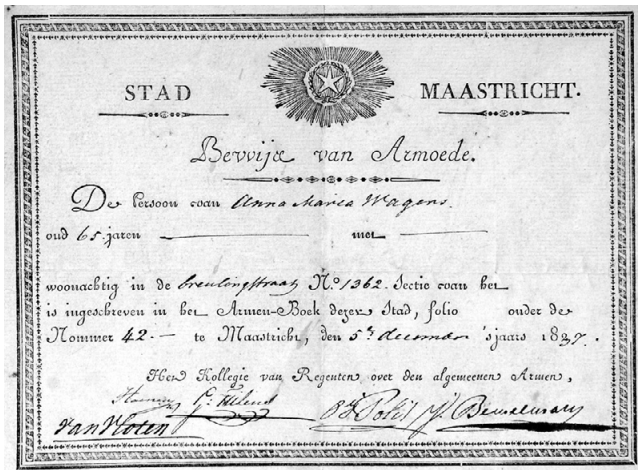 STAD MAASTRICHT.
Bewijs van Armoede.
De Persoon van Anna Maria Wagens
oud 65 jaren met
woonachtig in de breulingstraat N.o 1362. Sectie van het
is ingeschreven in het Armen-Boek dezer Stad, folio onder de
Nommer 42.— te Maastricht, den 5n december 'sjaars 1837.
Het Kollegie van Regenten over den algemeenen Armen,
van Vloten